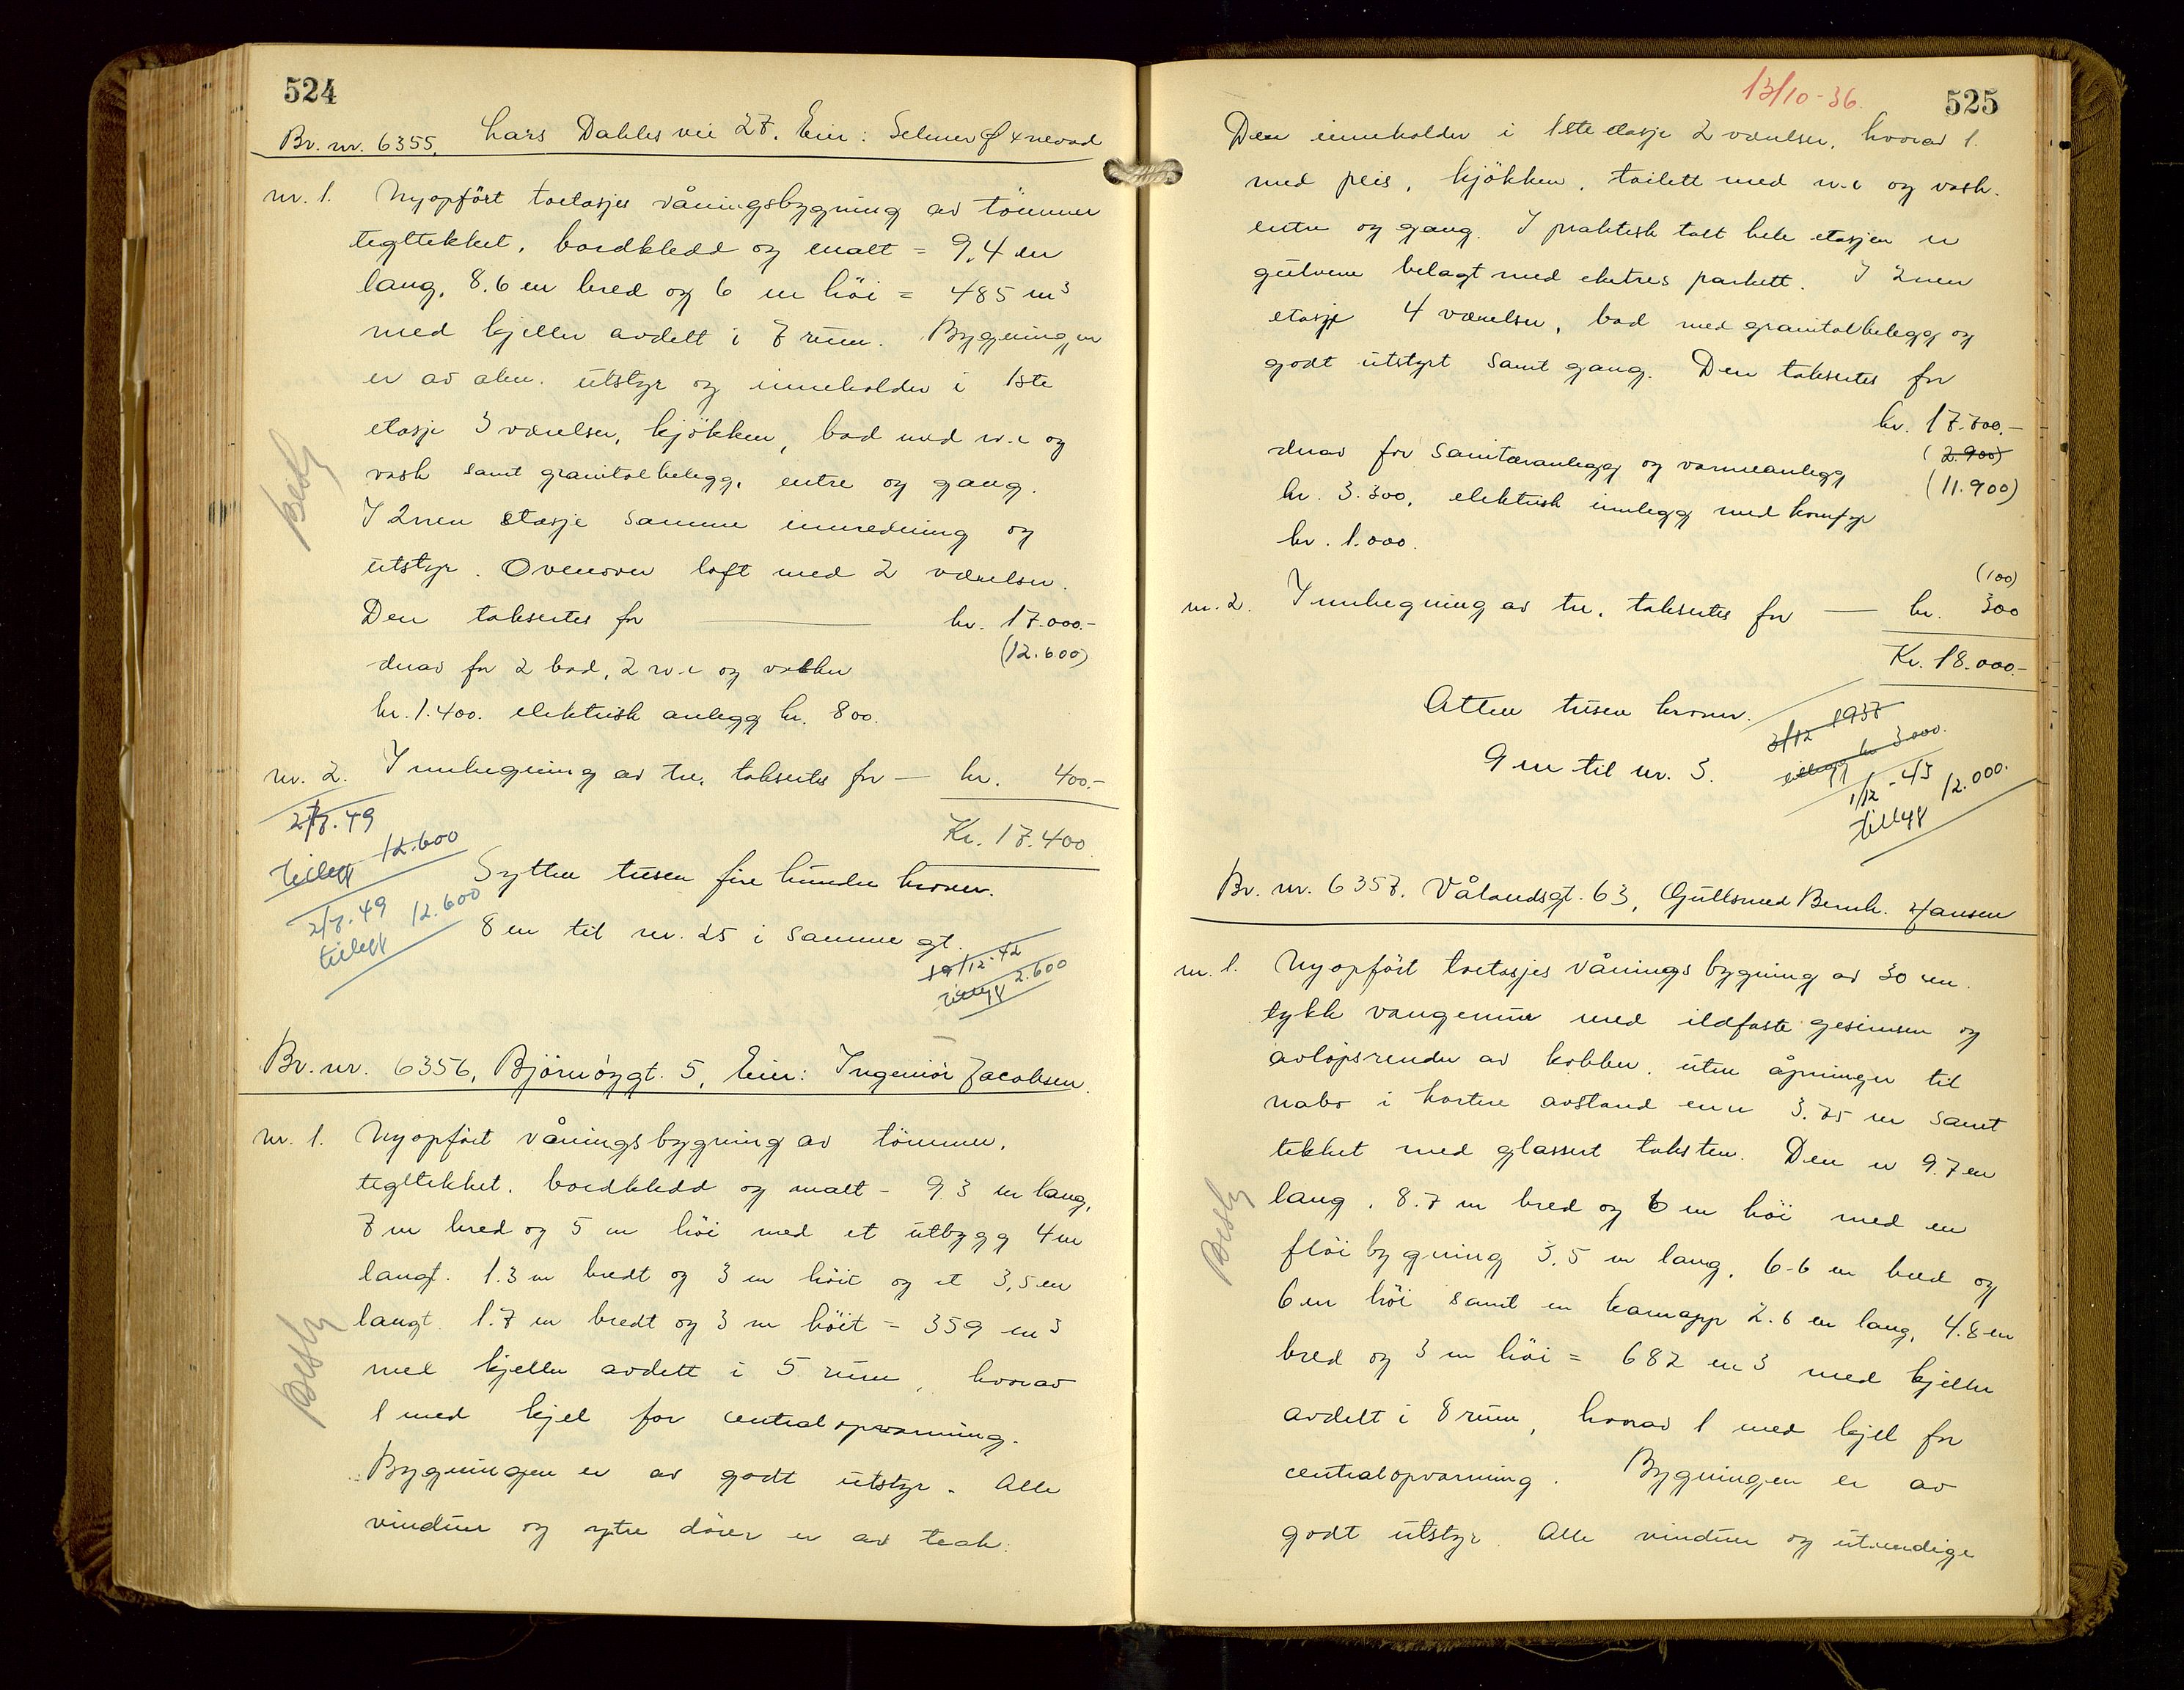 524
Br. nr. 6355. Lars Dahles vei 27. Eier: Selmer
nr. 1. Nyopført toetasjes våningsbygning av tømmer
tegltekket, bordkledd og malt = 9,4 m
lang, 8.6 m bred og 6 m höi = 485 m³
med kjeller avdelt i 7 rum. Bygningen
er av alm. utstyr og inneholder i 1ste
etasje 3 værelser, kjökken, bad med w.c og
vask samt granitolbelegg, entre og gang.
I 2nen etasje samme innredning og
utstyr. Ovenover loft med 2 værelser.
Den taksertes for — kr. 17.000.-
(12.600)
derav for 2 bad, 2 w.c og vasker
kr. 1.400. elektrisk anlegg kr. 800.
nr. 2. Innhegning av tre, taksertes for — kr. 400.-
2/7. 49
Kr. 17.400
tillegg 12.600
Sytten tusen fire hundre kroner.
2/7. 49
tillegg 12.600
8 m til nr. 25 i samme gt.
19/12-42
tillegg 2.600
Br. nr. 6356, Björnöygt. 5, Eier: Ingeniör Jacobsen.
nr. 1. Nyopført våningsbygning av tömmer,
tegltekket, bordkledd og malt - 9.3 m lang,
7 m bred og 5 m höi med et utbygg 4 m
langt. 1.3 m bredt og 3 m höit og et 3,5 m
langt. 1.7 m bredt og 3 m höit = 359 m³
med kjeller avdelt i 5 rum, hvorav
1 med kjel for centralopvarming.
Bygningen er av godt utstyr. Alle
vinduer og ytre dörer er av teak.
Besty
Besty
13/10-36.
525
Den inneholder i 1ste etasje 2 værelser, hvorav 1
med peis, kjökken, toilett med w.c og vask.
entre og gang. I praktisk talt hele etasjen er
gulvene belagt med eketres parkett. I 2nen
etasje 4 værelser, bad med granitolbelegg og
godt utstyrt samt gang. Den taksertes for
kr. 17.700.-
derav for sanitæranlegg og varmeanlegg (2.900)
kr. 3.300, elektrisk innlegg med komfyr (11.900)
kr. 1.000.
(100)
nr. 2. Innhegning av tre, taksertes for — kr. 300
Kr. 18.000.-
Atten tusen kroner.
3/12 1937
tillegg kr 3.000.
9 m til nr. 3.
1/12 - 43
tillegg 12.000.
Br. nr. 6357. Vålandsgt. 63, Gullsmed Bernh. Hansen
nr. 1. Nyopfört toetasjes våningsbygning av 30 cm.
tykk vangemur med ildfaste gesimser og
avlöpsrender av kobber, uten åpninger til
nabo i kortere avstand enn 3.75 m samt
tekket med glassert taksten. Den er 9.7 m
lang, 8.7 m bred og 6 m höi med en
flöibygning 3,5 m lang, 6.6 m bred og
6 m höi samt en karnapp 2.6 m lang, 4.8 m
bred og 3 m höi = 682 m³ med kjeller
avdelt i 8 rum, hvorav 1 med kjel for
centralopvarming. Bygningen er av
godt utstyr. Alle vinduer og utvendige
Besty